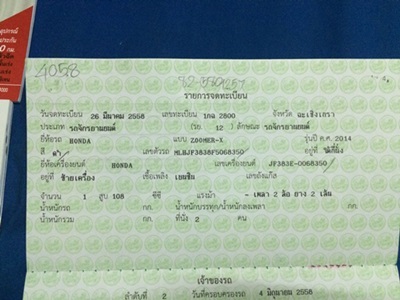 4058
รายการจดทะเบียน
วันจดทะเบียน 26 มีนาคม 2558 เลขทะเบียน 1กฉ 2800 จังหวัด ฉะเชิงเทรา
ประเภท รถจักรยานยนต์ (รย. 12 ) ลักษณะ รถจักรยานยนต์
ยี่ห้อรถ HONDA แบบ ZOOMER-X รุ่นปี ค.ศ. 2014
สี ดำ เลขตัวรถ MLHJF3838F5068350 อยู่ที่ ใต้ที่นั่ง
ยี่ห้อเครื่องยนต์ HONDA เลขเครื่องยนต์ JF383E-0068350
อยู่ที่ ซ้ายเครื่อง เชื้อเพลิง เบนซิน เลขถังแก๊ส
จำนวน 1 สูบ 108 ซีซี แรงม้า - เพลา 2 ล้อ ยาง 2 เส้น
น้ำหนักรถ กก. น้ำหนักบรรทุก/น้ำหนักลงเพลา กก.
น้ำหนักรวม กก. ที่นั่ง 2 คน
เจ้าของรถ
ลำดับที่ 2 วันที่ครอบครองรถ 4 มิถุนายน 2558